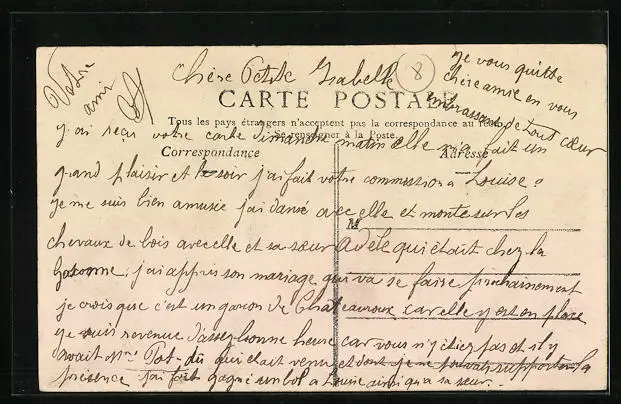 Chère Petite Isabelle
8
CARTE POSTALE
Tous les pays étrangers n'acceptent pas la correspondance au recto
Se renseigner à la Poste
Correspondance
Adresse
M
j'ai reçu votre carte dimanche matin elle m'a fait un
grand plaisir et le soir j'ai fait votre commission a Louise
je me suis bien amusée j'ai dansé avec elle et monté sur les
chevaux de bois avec elle et sa sœur Adèle qui était chez la
j'ai appris son mariage qui va se faire prochainement
je crois que c'est un garçon de Chateauroux car elle y est en place
je suis revenue d'assez bonne heure car vous n'y étiez pas et s'il y
avait Mr Pot-du qui était venu et dont je ne pouvais supporter la
présence j'ai fait gagné un bol a Louise ainsi qu'a sa sœur.
je vous quitte
chère amie en vous
embrassant de tout cœur
Votre
amie